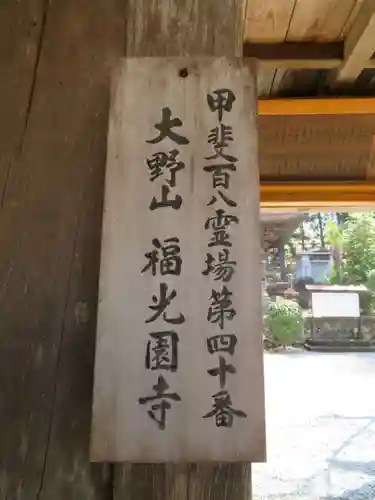 甲斐百八霊場第四十番
大野山 福光園寺